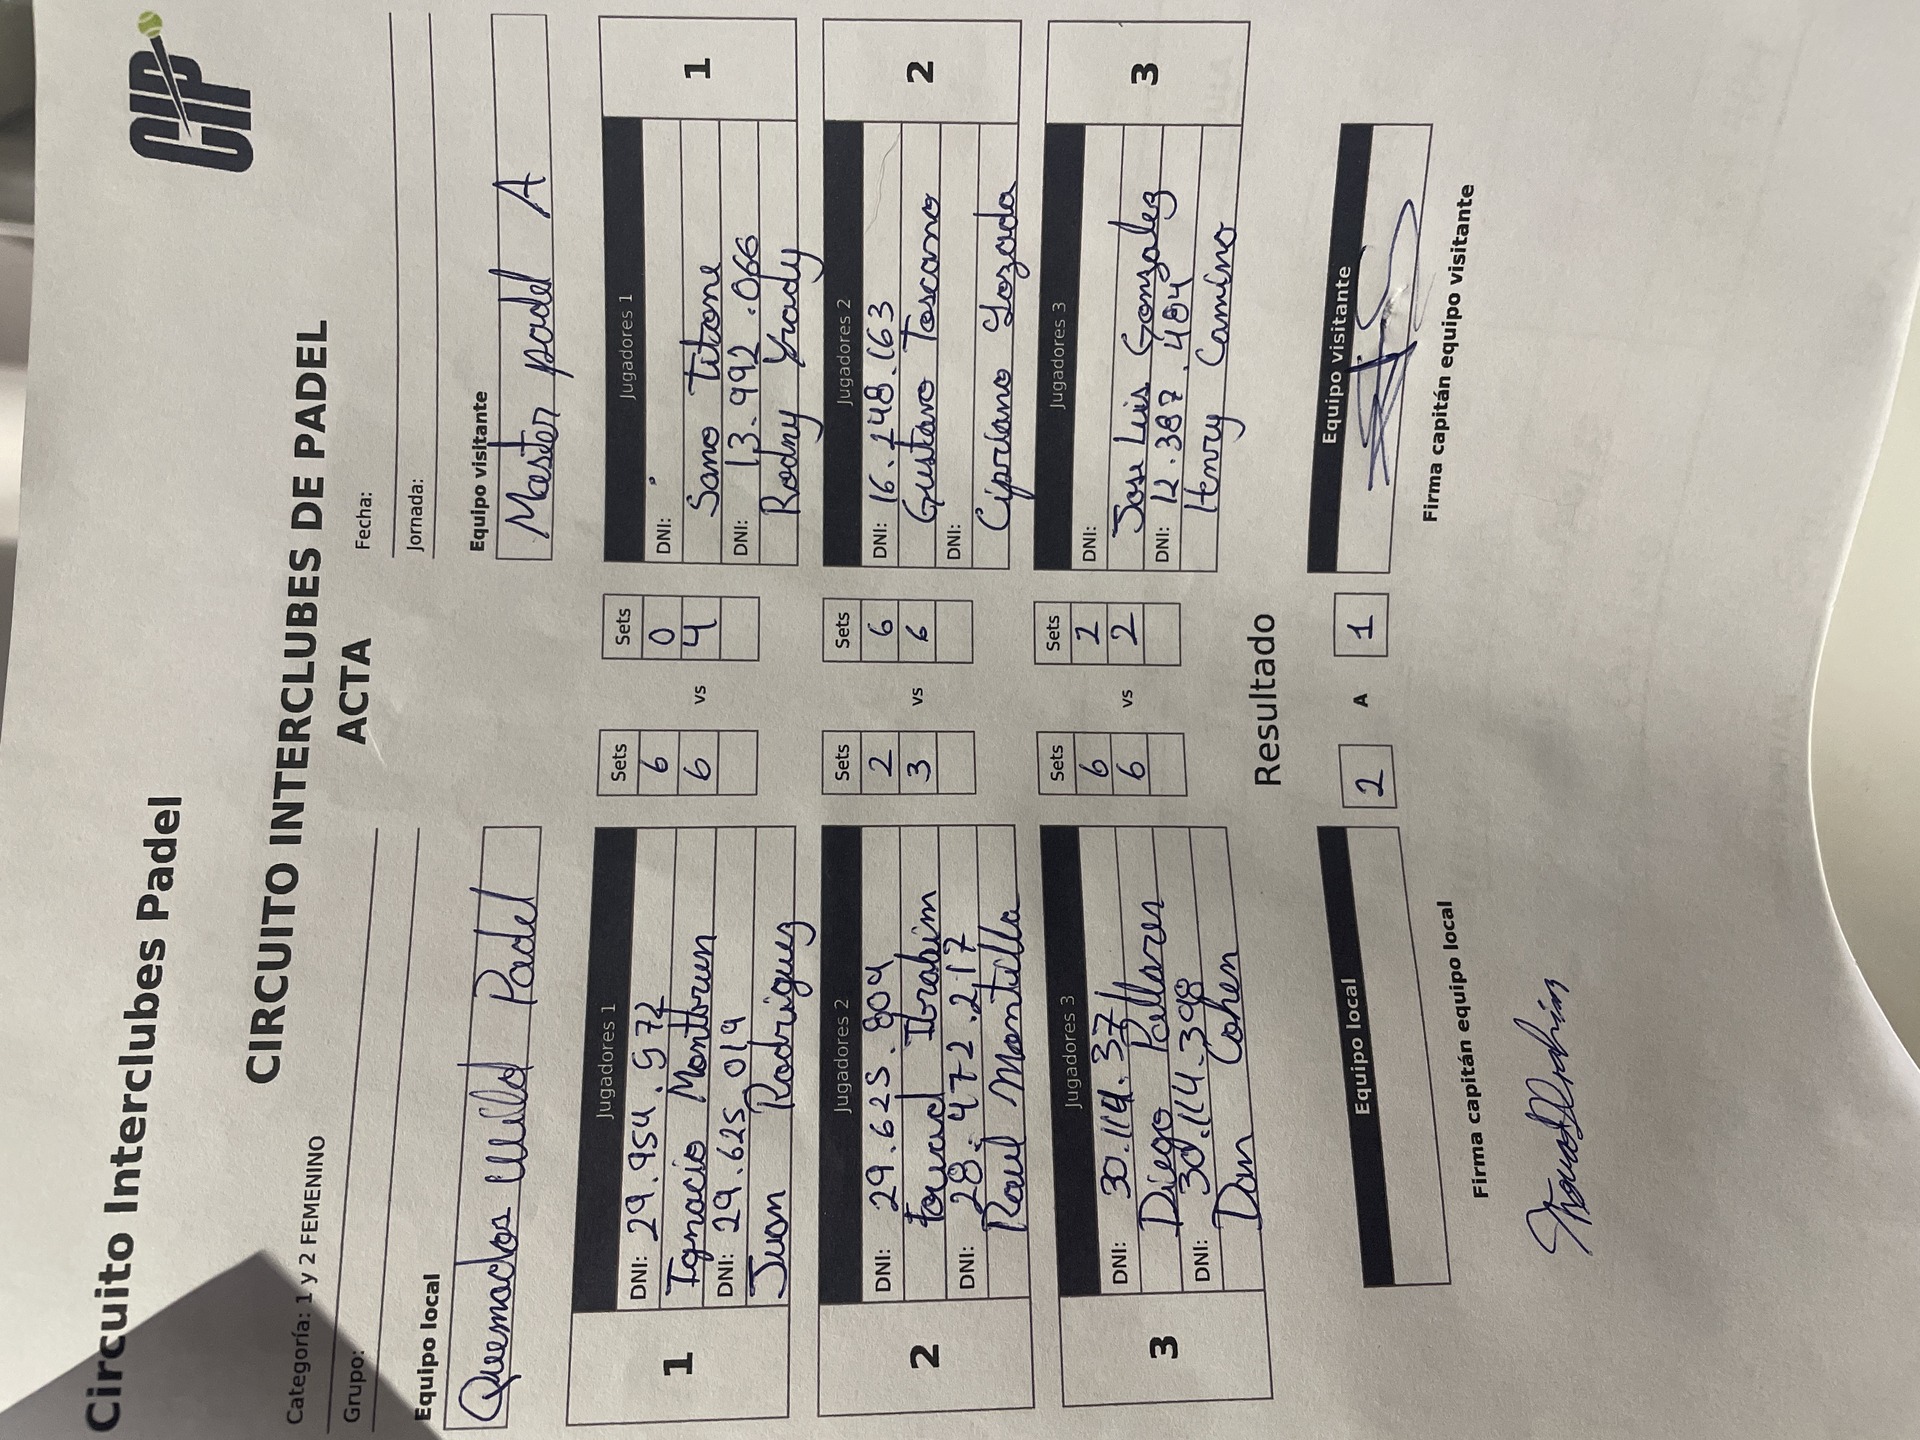 Circuito Interclubes Padel
CIP
CIRCUITO INTERCLUBES DE PADEL
ACTA
Categoría: 1 y 2 FEMENINO
Fecha:
Grupo:
Jornada:
Equipo local
Equipo visitante
Quemados Wild Padel
Master padel A
1
Jugadores 1
DNI: 29.954.972
Ignacio Montbrun
DNI: 29.625.019
Juan Rodriguez
Sets
6
6
vs
Sets
0
4
Jugadores 1
DNI:
Sano Titone
DNI: 13.992.066
Rodny Yrady
1
2
Jugadores 2
DNI: 29.625.804
Fouad Ibrahim
28.472.217
DNI:
Raul Mantilla
Sets
2
3
vs
Sets
6
6
Jugadores 2
DNI: 16.248.163
Gustavo Toscano
DNI:
Cipriano Lozada
2
3
Jugadores 3
DNI: 30.114.37
Diego Pallares
DNI: 30.114.398
Dan Cohen
Sets
6
6
vs
Sets
2
2
Jugadores 3
DNI:
Jose Luis Gonzalez
DNI: 12.387.484
Henry Camino
3
Resultado
Equipo local
2 A 1
Equipo visitante
Firma capitán equipo local
Firma capitán equipo visitante